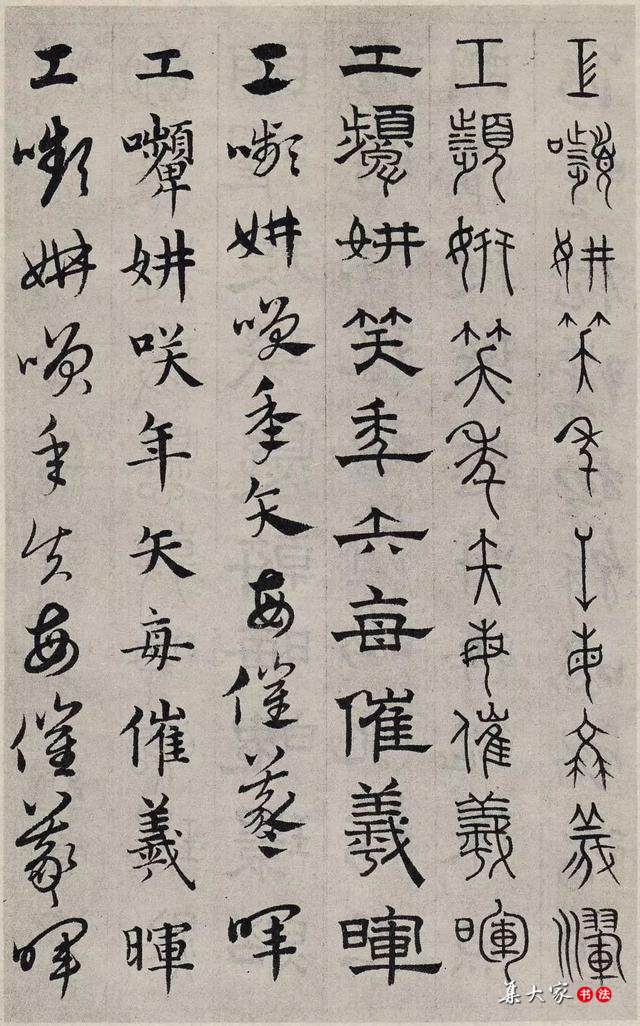 工嚬妍笑年矢每催羲暉
工顰妍笑年矢每催羲暉
工顰妍笑秊矢每催羲暉
工嚬妍咲秊矢每催羲暉
工顰妍咲年矢每催羲暉
工嚬妍咲年矢每催羲暉
集大家书法